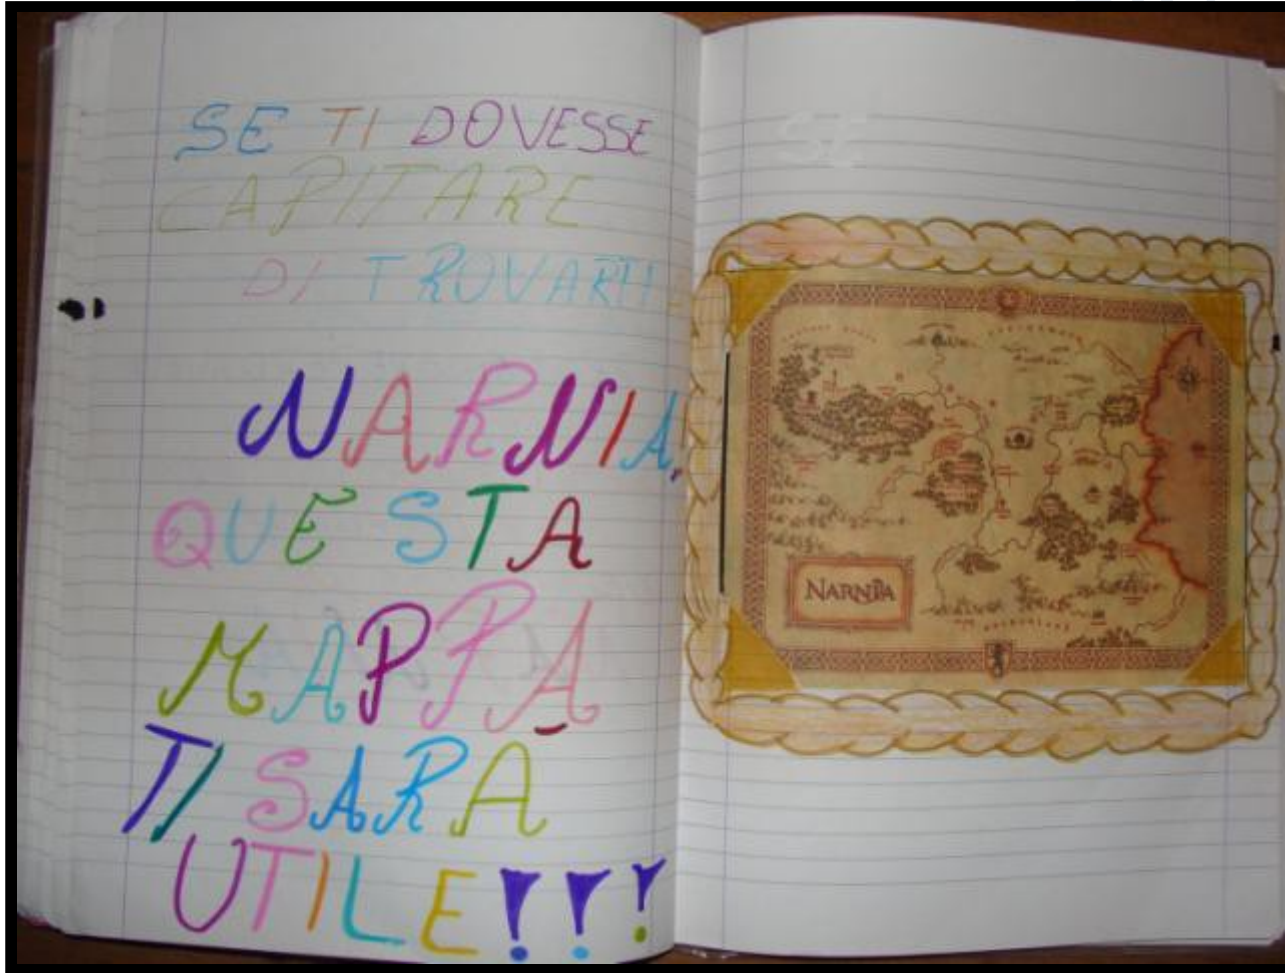 SE TI DOVESSE
CAPITARE
DI TROVARTI
NARNIA,
QUESTA
MAPPA
TI SARA
UTILE!!!
SE
NARNIA